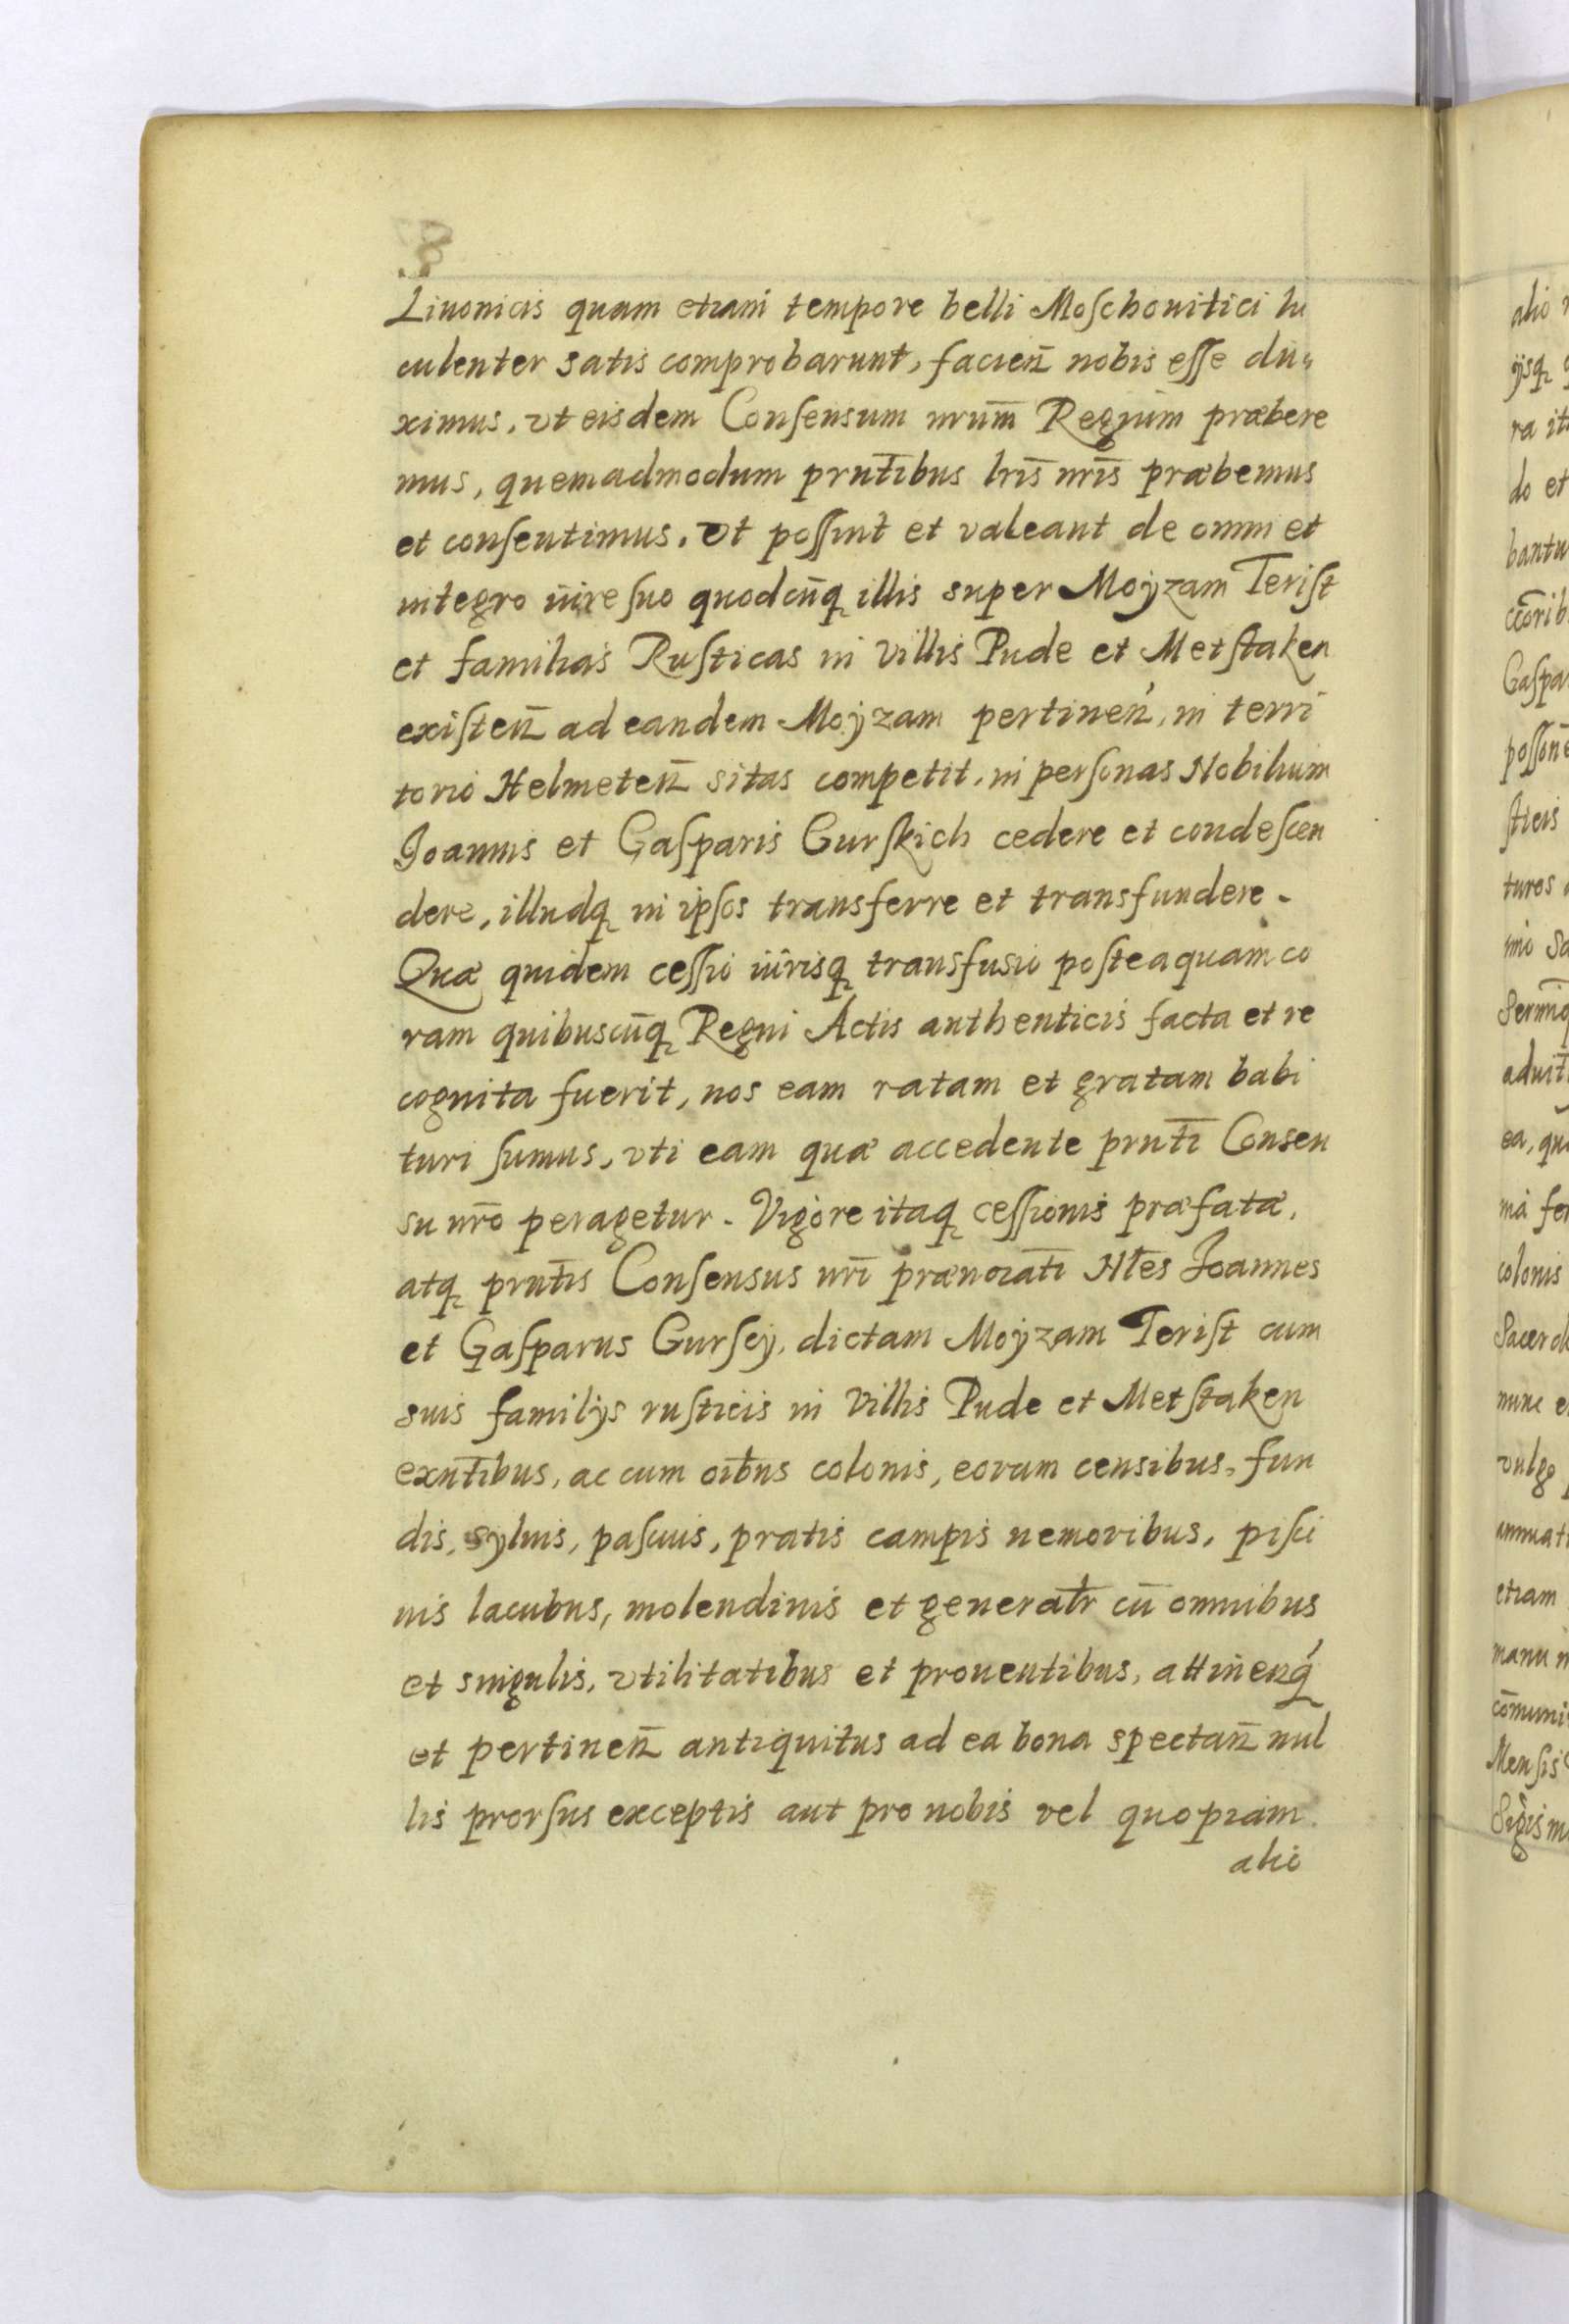 8
Liuonicis quam etiam tempore belli Moſchouitici lu
culenter satis comprobarunt, facien̄ nobis eſſe du⸗
ximus, vt eisdem Conſensum nrum̄ Regium præbere
mus, quemadmodum prnt̄ibus lrīs nrīs præbemus
et conſentimus. Vt poſſint et valeant de omni et
integro iure ſuo quodcūq illis super Moÿzam Teriſt
et familias Ruſticas in Villis Pude et Metſtaken
exiſten̄ ad eandem Moÿzam pertinen̄, in terri
torio Helmeten̄ sitas competit, in perſonas Nobilium
Joannis et Gaſparis Gurſkich cedere et condeſcen
dere, illudq in ipſos transferre et transfundere.
Quæ quidem ceſſio iurisq transfusio poſteaquam co
ram quibuscūq Regni Actis authenticis facta et re
cognita fuerit, nos eam ratam et gratam habi
turi ſumus, vti eam quæ accedente prnt̄i Consen
su nrō peragetur. Vigore itaq ceſſionis præfatæ,
atq prnt̄is Conſensus nrī prænoīati Nlēs Joannes
et Gaſparus Gurſcÿ, dictam Moÿzam Teriſt cum
suis familÿs ruſticis in Villis Pude et Metſtaken
exnt̄ibus, ac cum oībus colonis, eorum censibus, fun
dis, sÿluis, paſcuis, pratis campis nemoribus, piſci
nis lacubus, molendinis et generalr̄ cū omnibus
et singulis, vtilitatibus et prouentibus, attinen̄q
et pertinen̄ antiquitus ad ea bona spectan̄ nul
lis prorſus exceptis aut pro nobis vel quopiam
alio